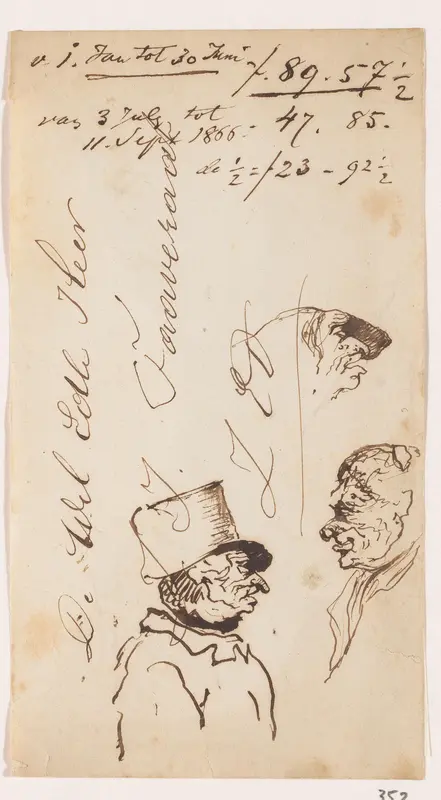 v. 1. Jan tot 30 Juni f. 89.57 1/2
van 3 July tot
11. Sept 1866 = 47. 85.
de 1/2 = f 23 - 92 1/2
De Wel Edle Heer
J.
352